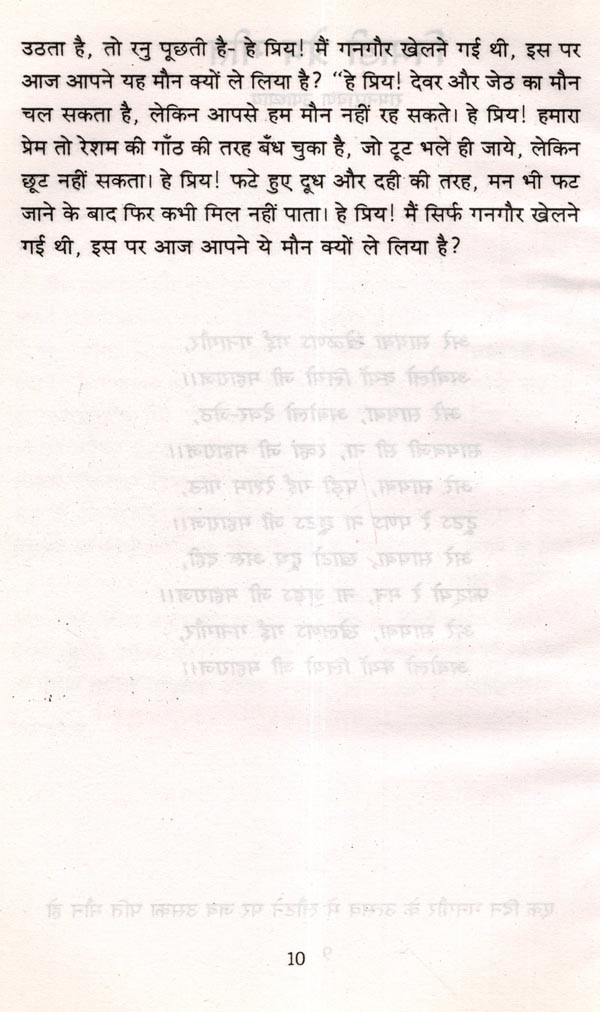 उठता है, तो रनु पूछती है- हे प्रिय! मैं गनगौर खेलने गई थी, इस पर
आज आपने यह मौन क्यों ले लिया है? “हे प्रिय! देवर और जेठ का मौन
चल सकता है, लेकिन आपसे हम मौन नहीं रह सकते। हे प्रिय! हमारा
प्रेम तो रेशम की गाँठ की तरह बँध चुका है, जो टूट भले ही जाये, लेकिन
छूट नहीं सकता। हे प्रिय! फटे हुए दूध और दही की तरह, मन भी फट
जाने के बाद फिर कभी मिल नहीं पाता। हे प्रिय! मैं सिर्फ गनगौर खेलने
गई थी, इस पर आज आपने ये मौन क्यों ले लिया है?
10